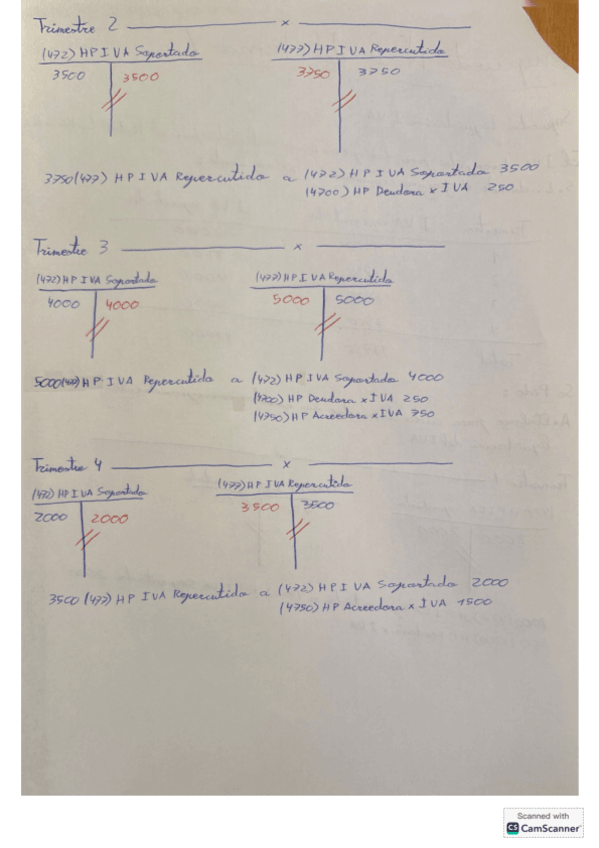 Trimestre 2 x
(472) HP IVA Soportado (477) HP IVA Repercutido
3500 3500 3750 3750
3750 (477) HP IVA Repercutido a (472) HP IVA Soportado 3500
(4700) HP Deudora x IVA 250
Trimestre 3 x
(472) HP IVA Soportado (477) HP IVA Repercutido
4000 4000 5000 5000
5000 (477) HP IVA Repercutido a (472) HP IVA Soportado 4000
(4700) HP Deudora x IVA 250
(4750) HP Acreedora x IVA 750
Trimestre 4 x
(472) HP IVA Soportado (477) HP IVA Repercutido
2000 2000 3500 3500
3500 (477) HP IVA Repercutido a (472) HP IVA Soportado 2000
(4750) HP Acreedora x IVA 1500
Scanned with
CS CamScanner